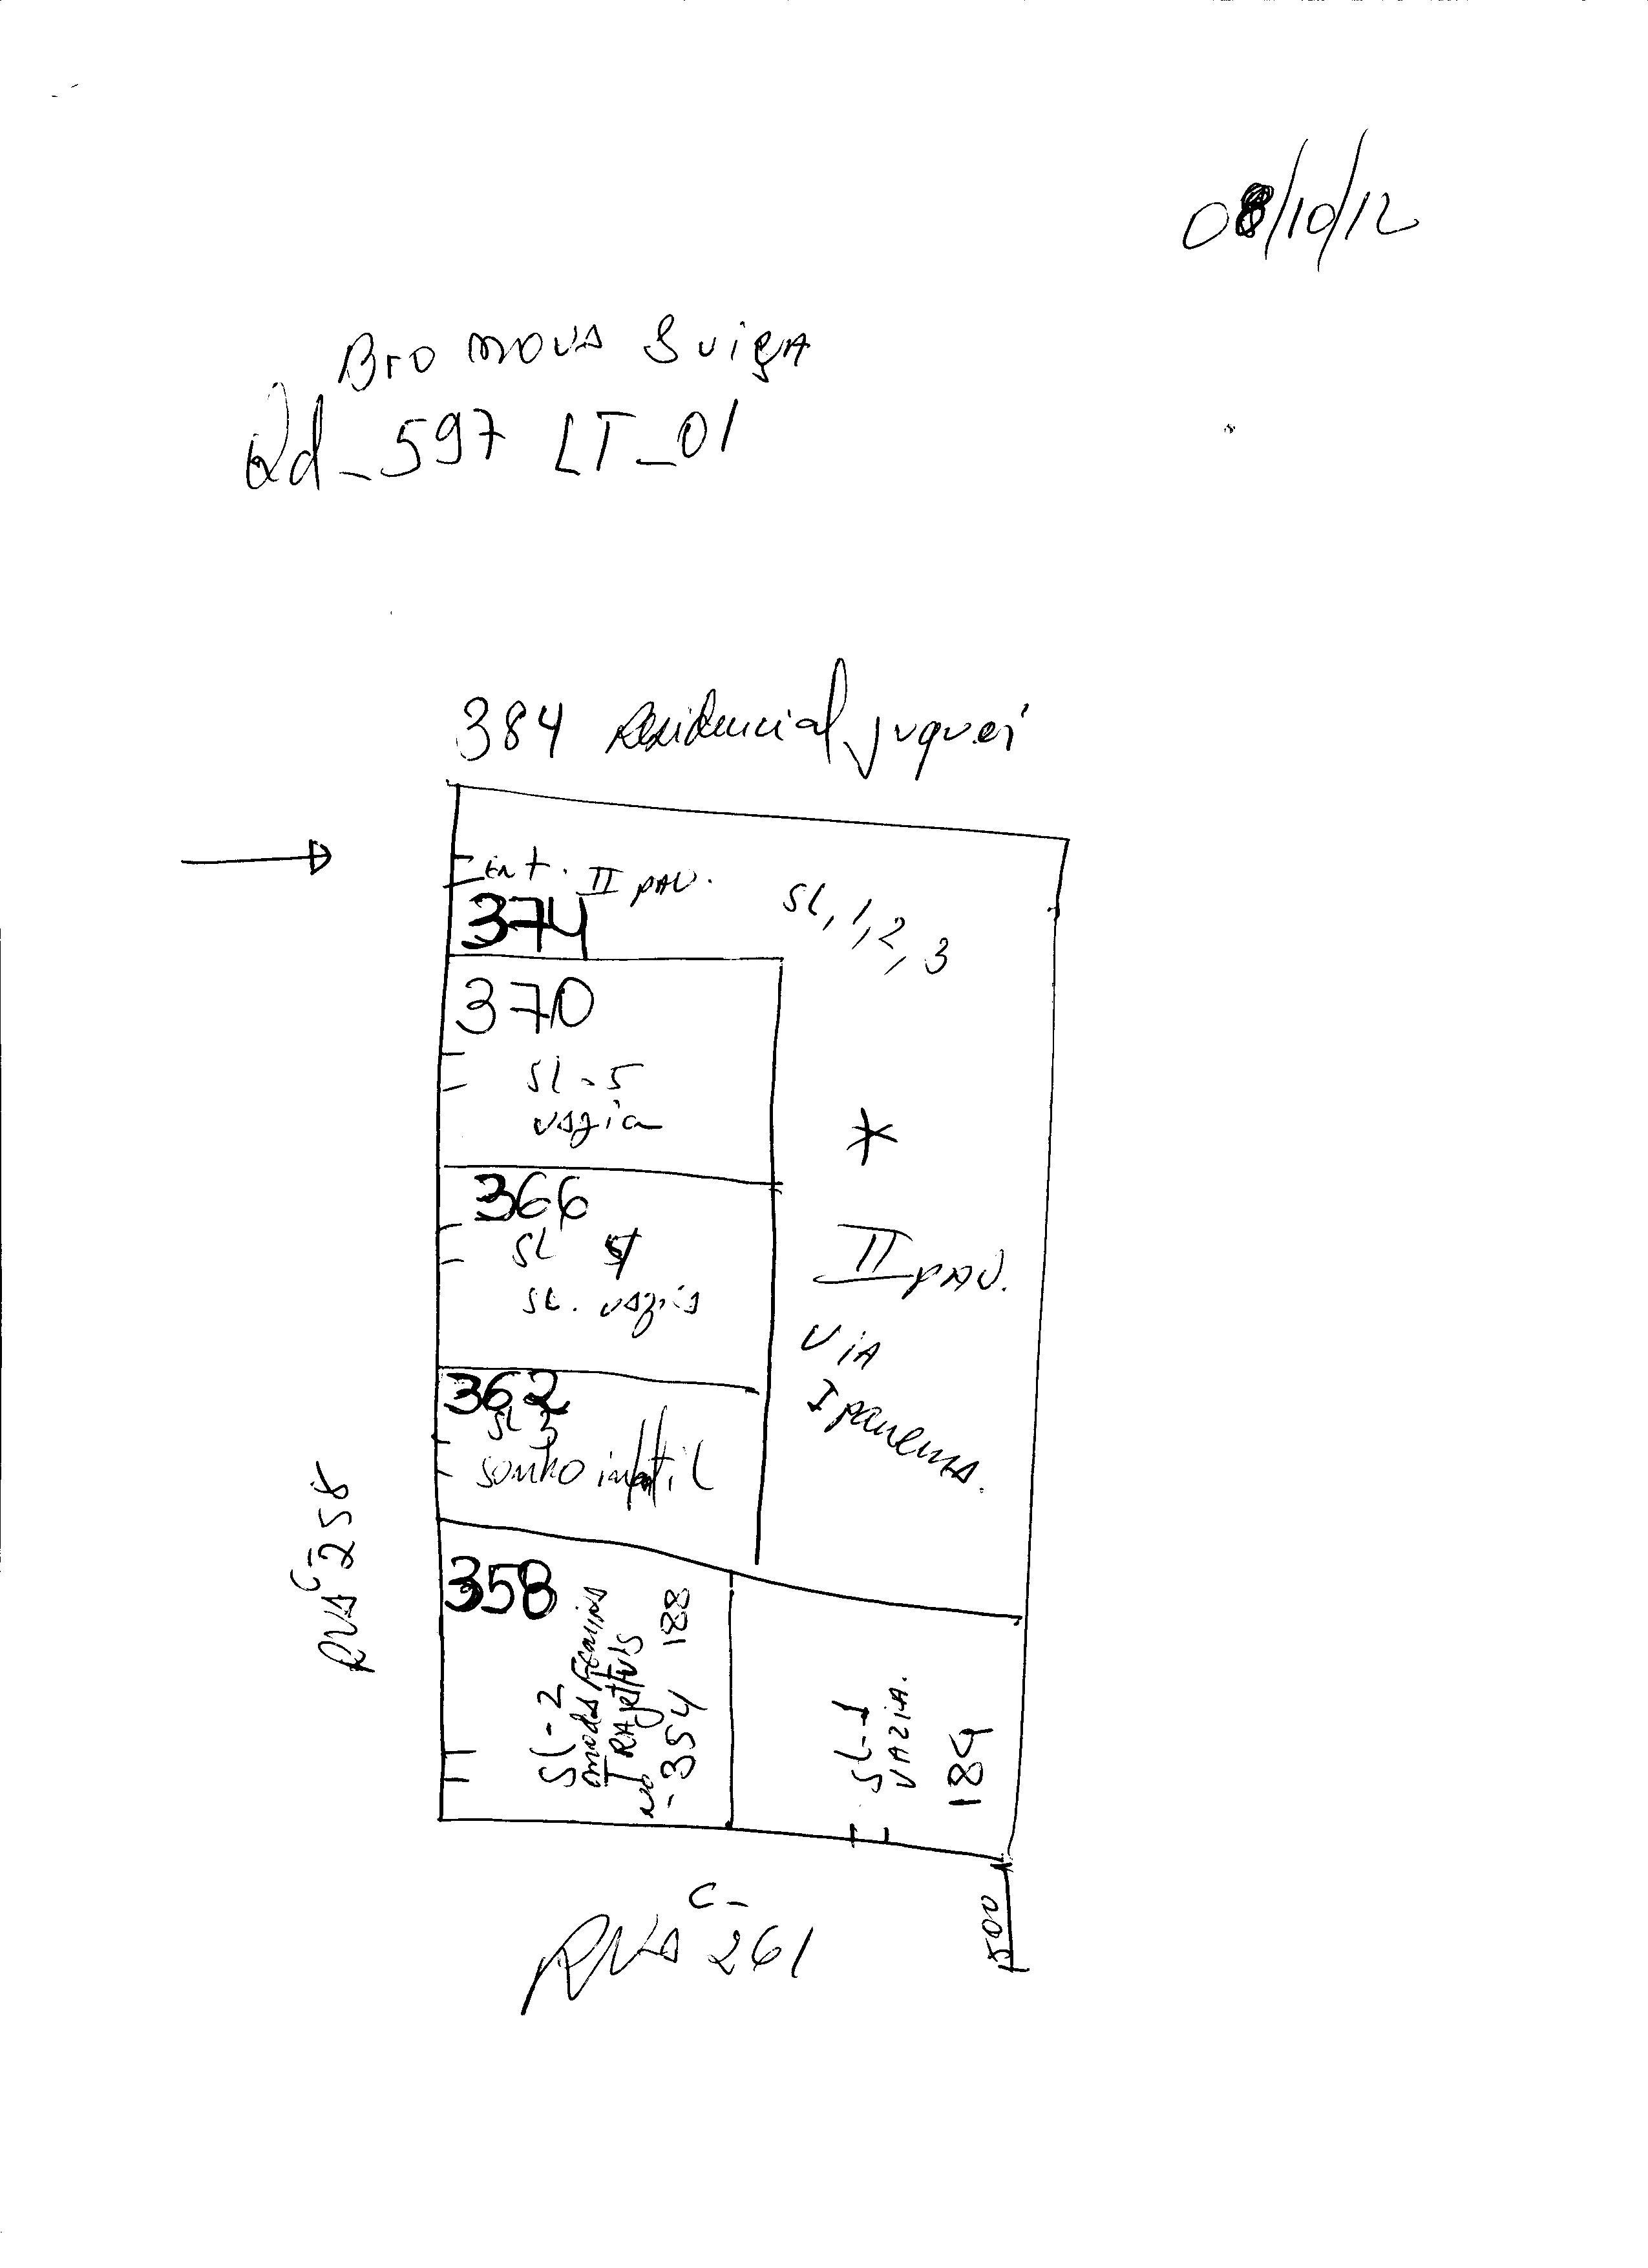 08/10/12
Bro nova Suiça
Qd_597 LT_01
384 Residencial juquei
Ent. II PAV.
SL, 1, 2, 3
374
370
SL-5
vazia
*
366
SL
SL. vazia
II PAV.
VIA
Ipanema.
362
SL 3
sonho infantil
RUA C-258
358
SL-2
modas
no
-354 188
SL-1
VAZIA.
184
RUA C-261
1500